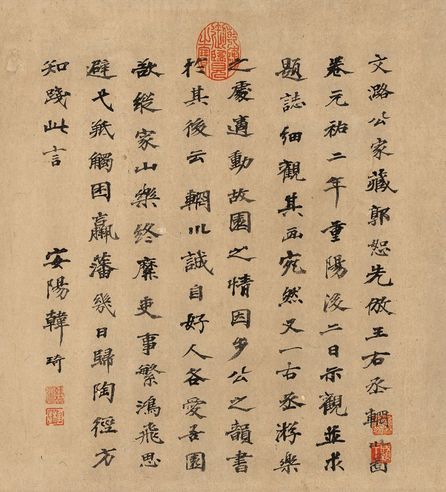 文潞公家藏郭恕先倣王右丞輞川圖
卷元祐二年重陽後二日示觀並求
題誌細觀其画宛然又一右丞游樂
之處適動故園之情因步公之韻書
於其後云輞川誠自好人各愛吾園
敢縱家山樂終縻吏事繁鴻飛思
避弋羝觸困羸藩幾日歸陶徑方
知踐此言 安陽韓琦